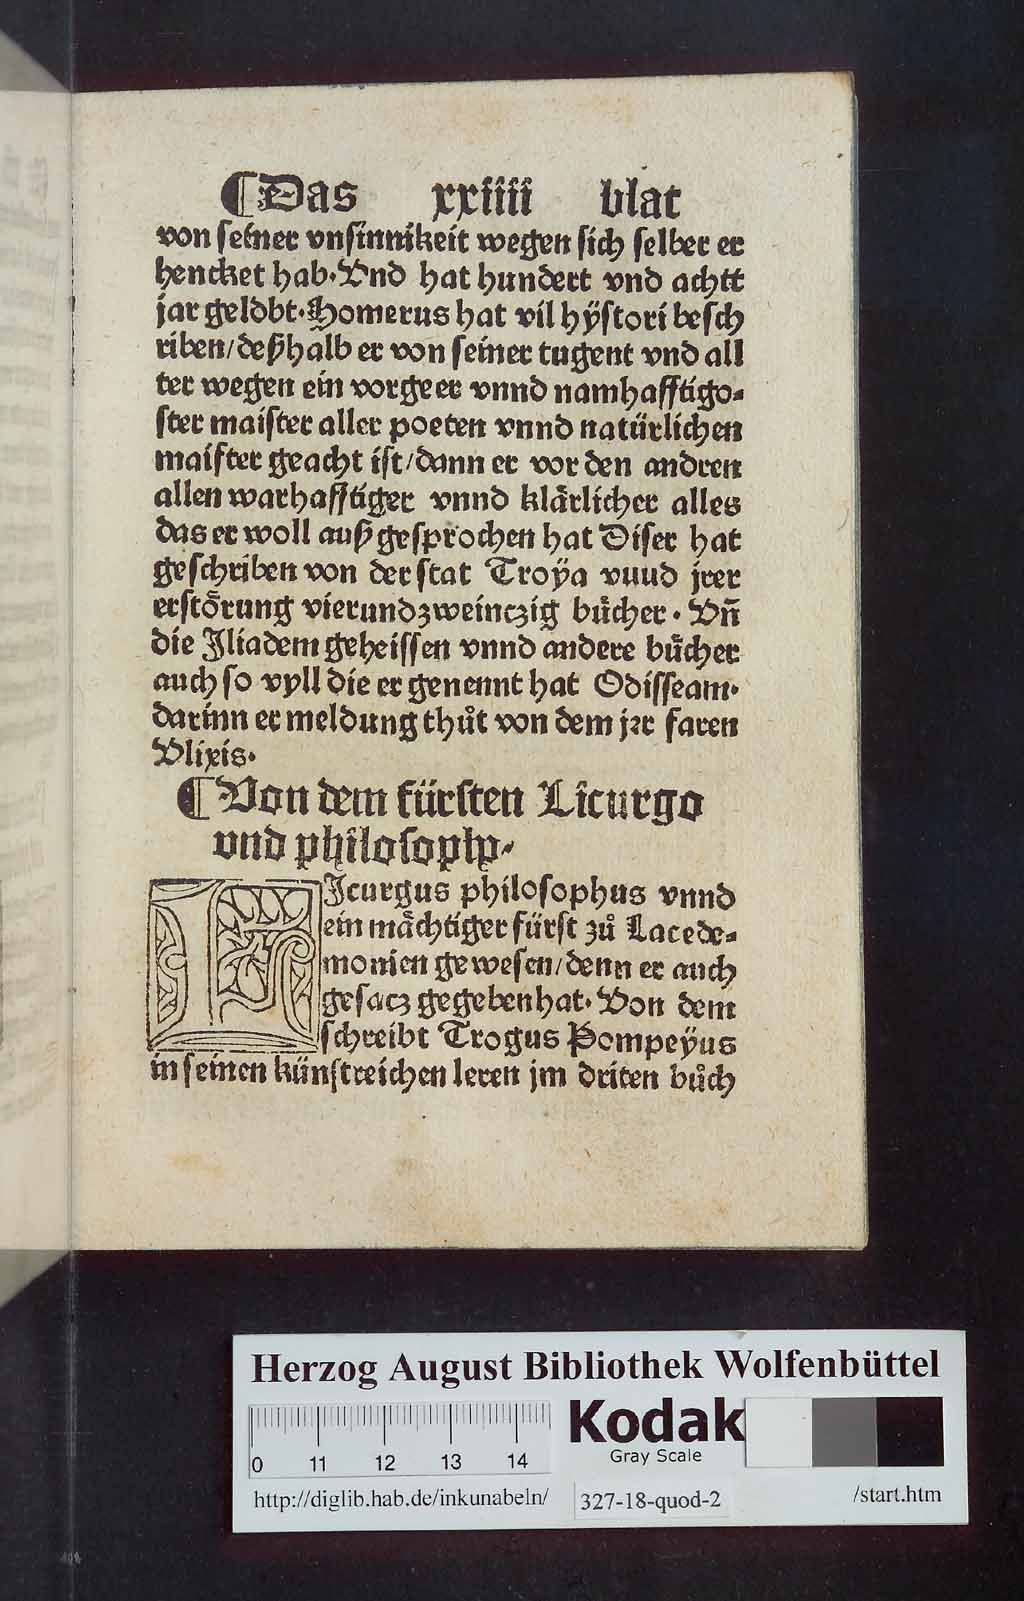 ¶Das xxiiii blat
von seiner vnsinnikeit wegen sich selber er
hencket hab·Vnd hat hundert vnd achtt
jar gelobt·Homerus hat vil hÿstori besch
riben/deßhalb er von seiner tugent vnd all
ter wegen ein vorgeer vnnd namhafftigo-
ster maister aller poeten vnnd natürlichen
maister geacht ist/dann er vor den andren
allen warhafftiger vnnd klärlicher alles
das er woll außgesprochen hat Diser hat
geschriben von der stat Troÿa vuud jrer
erstörung vierundzweinczig bücher· Vn̄
die Jliadem geheissen vnnd andere bücher
auch so vyll die er genennt hat Odisseam·
darinn er meldung thůt von dem jrr faren
Vlixis·
¶Von dem fürsten Licurgo
vnd philosophy·
LJcurgus philosophus vnnd
ein mächtiger fürst zů Lacede-
monien gewesen/denn er auch
gesacz gegebenhat· Von dem
schreibt Trogus Pompeÿus
in seinen künstreichen leren jm driten bůch
Herzog August Bibliothek Wolfenbüttel
0 11 12 13 14
Kodak
Gray Scale
http://diglib.hab.de/inkunabeln/ 327-18-quod-2 /start.htm